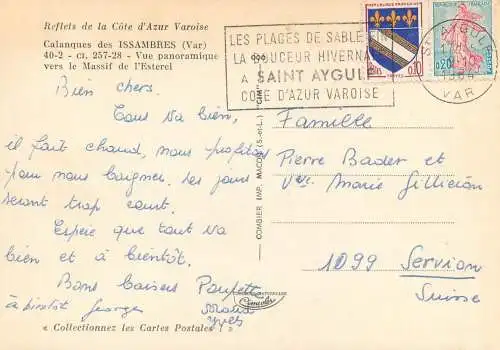 Reflets de la Côte d'Azur Varoise
Calanques des ISSAMBRES (Var)
40-2 - CI. 257-28 - Vue panoramique
vers le Massif de l'Esterel
LES PLAGES DE SABLE FIN
LA DOUCEUR HIVERNALE
A SAINT AYGULF
COTE D'AZUR VAROISE
ST AYGULF
VAR
0,10
0,20
Bien chers.
Tous va bien,
il fait chaud, nous profitons
pour nous baigner. Les jours
seront trop court.
Espère que tout va
bien et à bientôt.
Bons baisers Paulette
à bientôt Georges
Yves
« Collectionnez les Cartes Postales ! »
COMBIER IMP. MACON (S.-et-L.) "CIM"
Famille
Pierre Bader et
Vve Marie Gilliéron
1099 Servion
Suisse